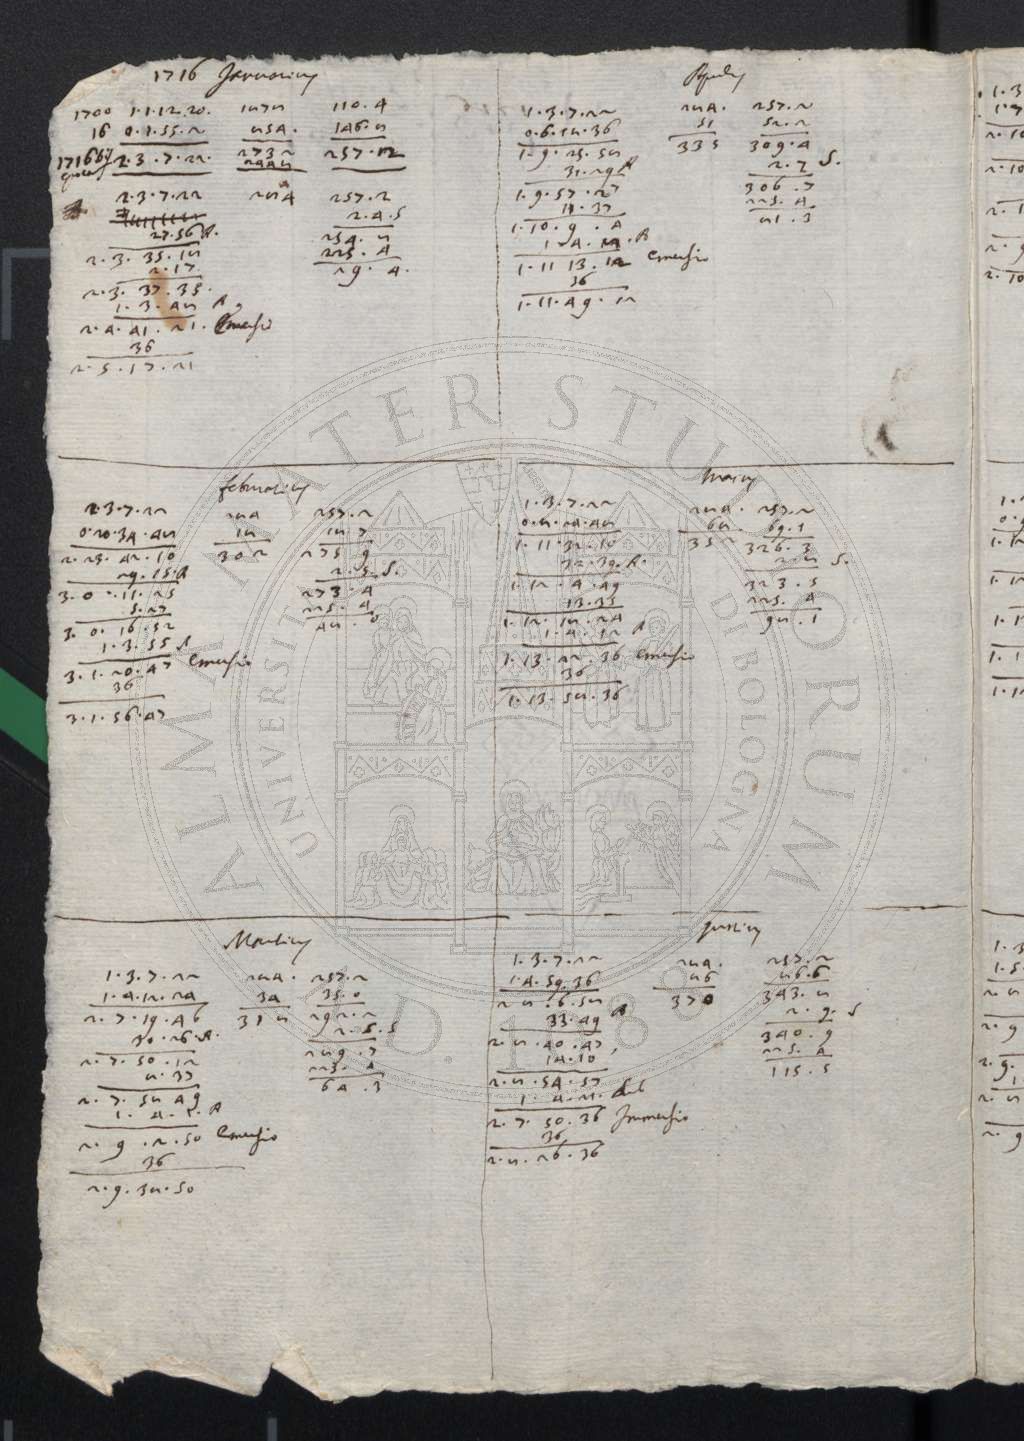 1716 Januarius
1700 1.1.12.20. 1878 110.4
16 0.1.55.2 854. 146.8
1716 2.3.7.22. 2732 257.2
2448
2.3.7.22 284 257.2
2.4.S
27.56 A. 254.8
2.3.35.18 225.4
2.17 29.4.
2.3.37.35.
1.3.48 A
2.4.41.21. Emersio
36
2.5.17.21
Aprilis
1.3.7.22 284. 257.2
0.6.18.36 51 52.2
1.9.25.58 335 309.4
31.29 A 2.7 S.
1.9.57.27 306.7
11.37 225.4
1.10.9.4 81.3
1.4.8 A
1.11.13.12 Emersio
36
1.11.49.12
februarius
2.3.7.22 284 257.2
0.20.34.48 18 18.7
2.23.42.10 302 275.9
29.15 A 2.5.S.
3.0.11.25 273.4
5.27 225.4
3.0.16.52 48.0
1.3.55 A
3.1.20.47 Emersio
36
3.1.56.47
Maius
1.3.7.22 284. 257.2
0.8.24.48 68 69.1
1.11.32.10 352 326.3
32.39.A. 2.8 S.
1.12.4.49 323.5
13.35 225.4
1.12.18.24 98.1
1.4.12 A
1.13.22.36 Emersio
36
1.13.58.36
Martius
1.3.7.22 284. 257.2
1.4.12.24 34 35.0
2.7.19.46 318 292.2
30.26.A. 2.5.S
2.7.50.12 289.7
8.37 225.4
2.7.58.49 64.3
1.4.1.A
2.9.2.50 Emersio
36
2.9.38.50
Junius
1.3.7.22 284. 257.2
1.4.59.36 86 86.6
2.8.6.58 370 343.8
33.49 A 2.9. S
2.8.40.47 340.9
14.10 225.4
2.8.54.57 115.5
1.4.21. Sub
2.7.50.36 Immersio
36
2.8.26.36